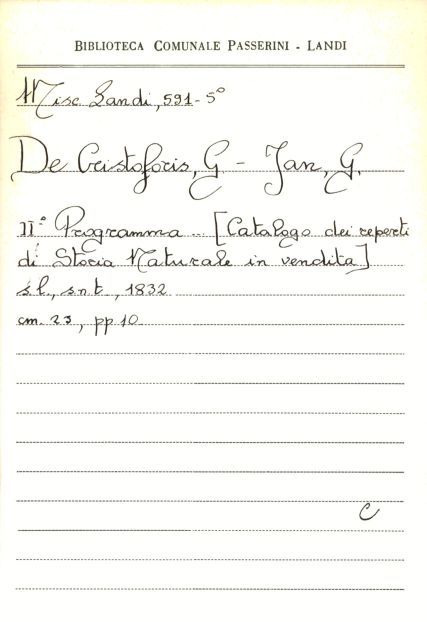 BIBLIOTECA COMUNALE PASSERINI - LANDI
Misc. Landi, 591-5°
De Cristoforis, G - Jan, G.
II° Programma ... [Catalogo dei reperti
di Storia Naturale in vendita]
s.l., s.n.t., 1832
cm. 23, pp 10
C